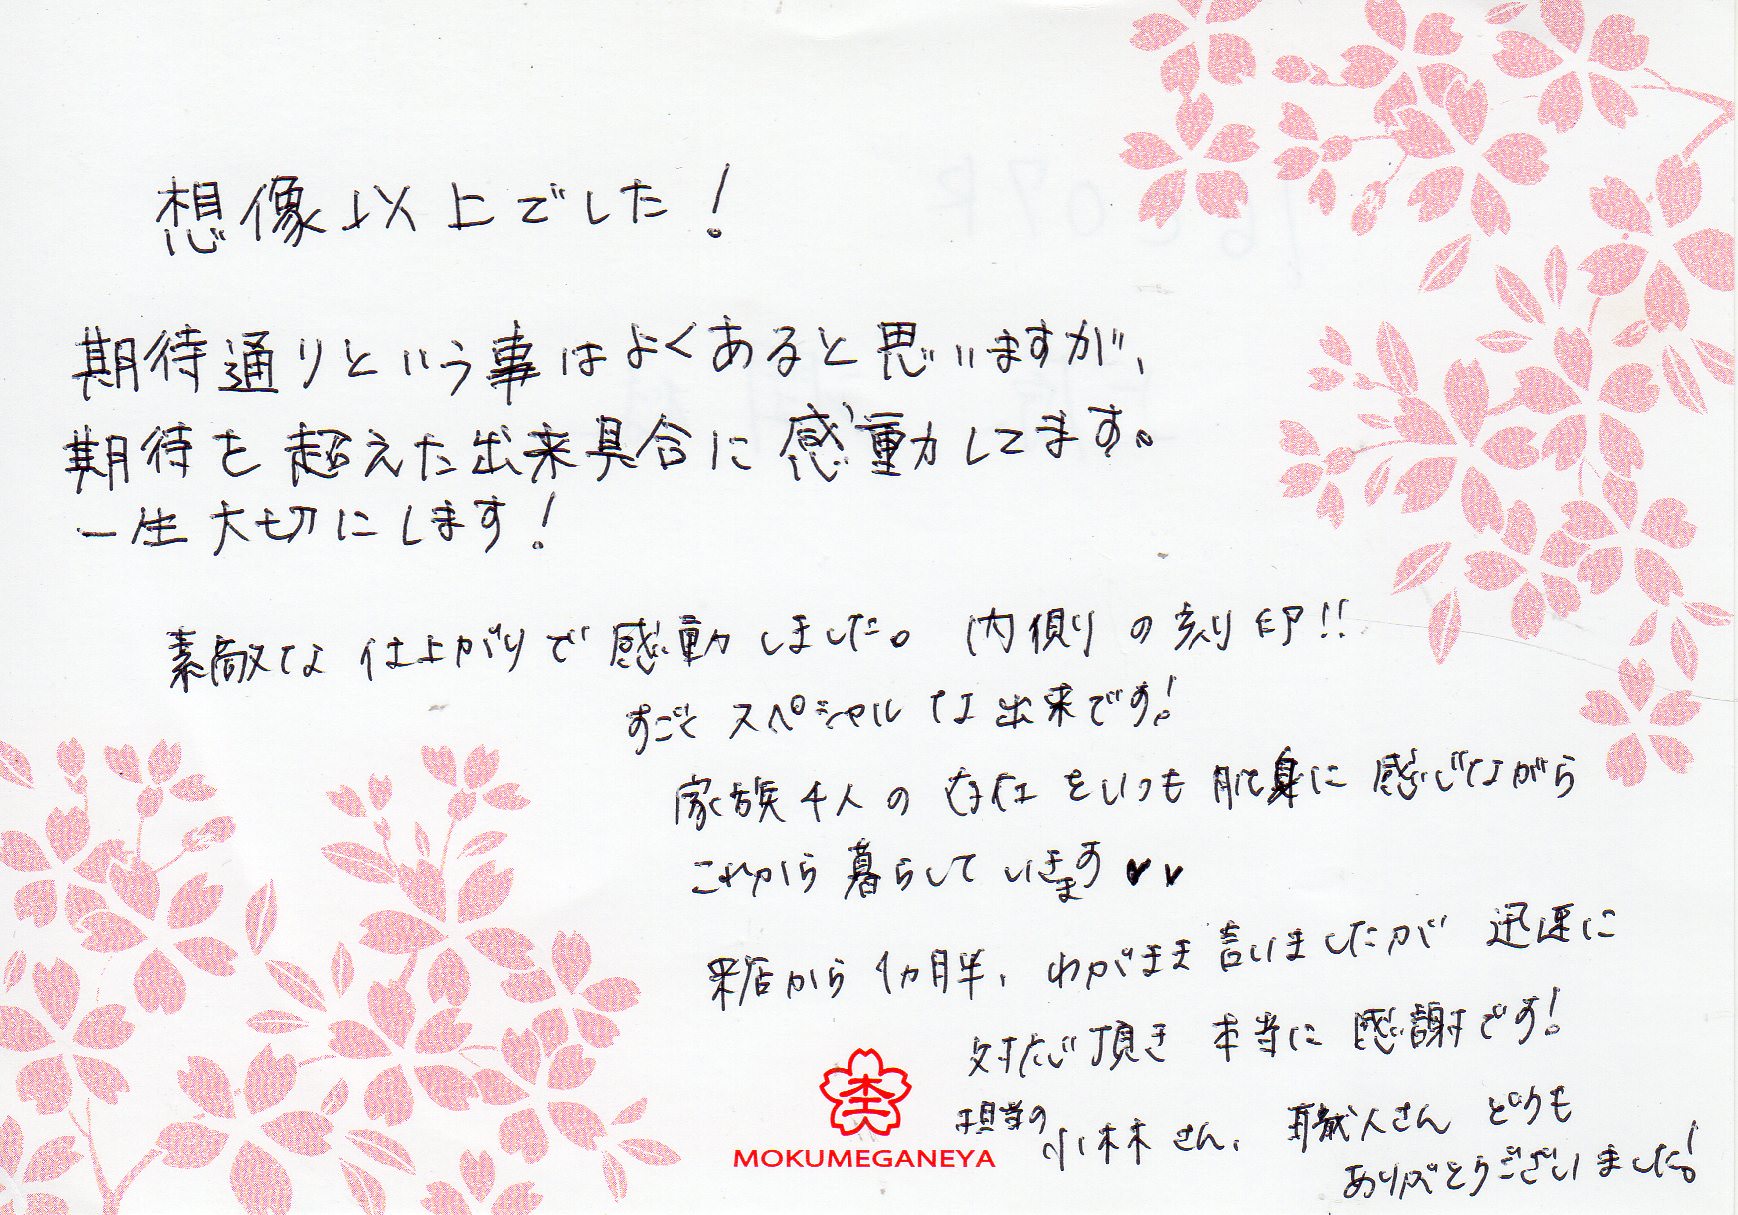 想像以上でした！
期待通りという事はよくあると思いますが、
期待を超えた出来具合に感動してます。
一生大切にします！
素敵な仕上がりで感動しました。内側の刻印!!
すごくスペシャルな出来です！
家族4人の存在をいつも肌身に感じながら
これから暮らしていきます♥♥
来店から1ヵ月半、わがまま言いましたが迅速に
対応頂き本当に感謝です！
担当の小林さん、職人さんどうも
ありがとうございました！
MOKUMEGANEYA